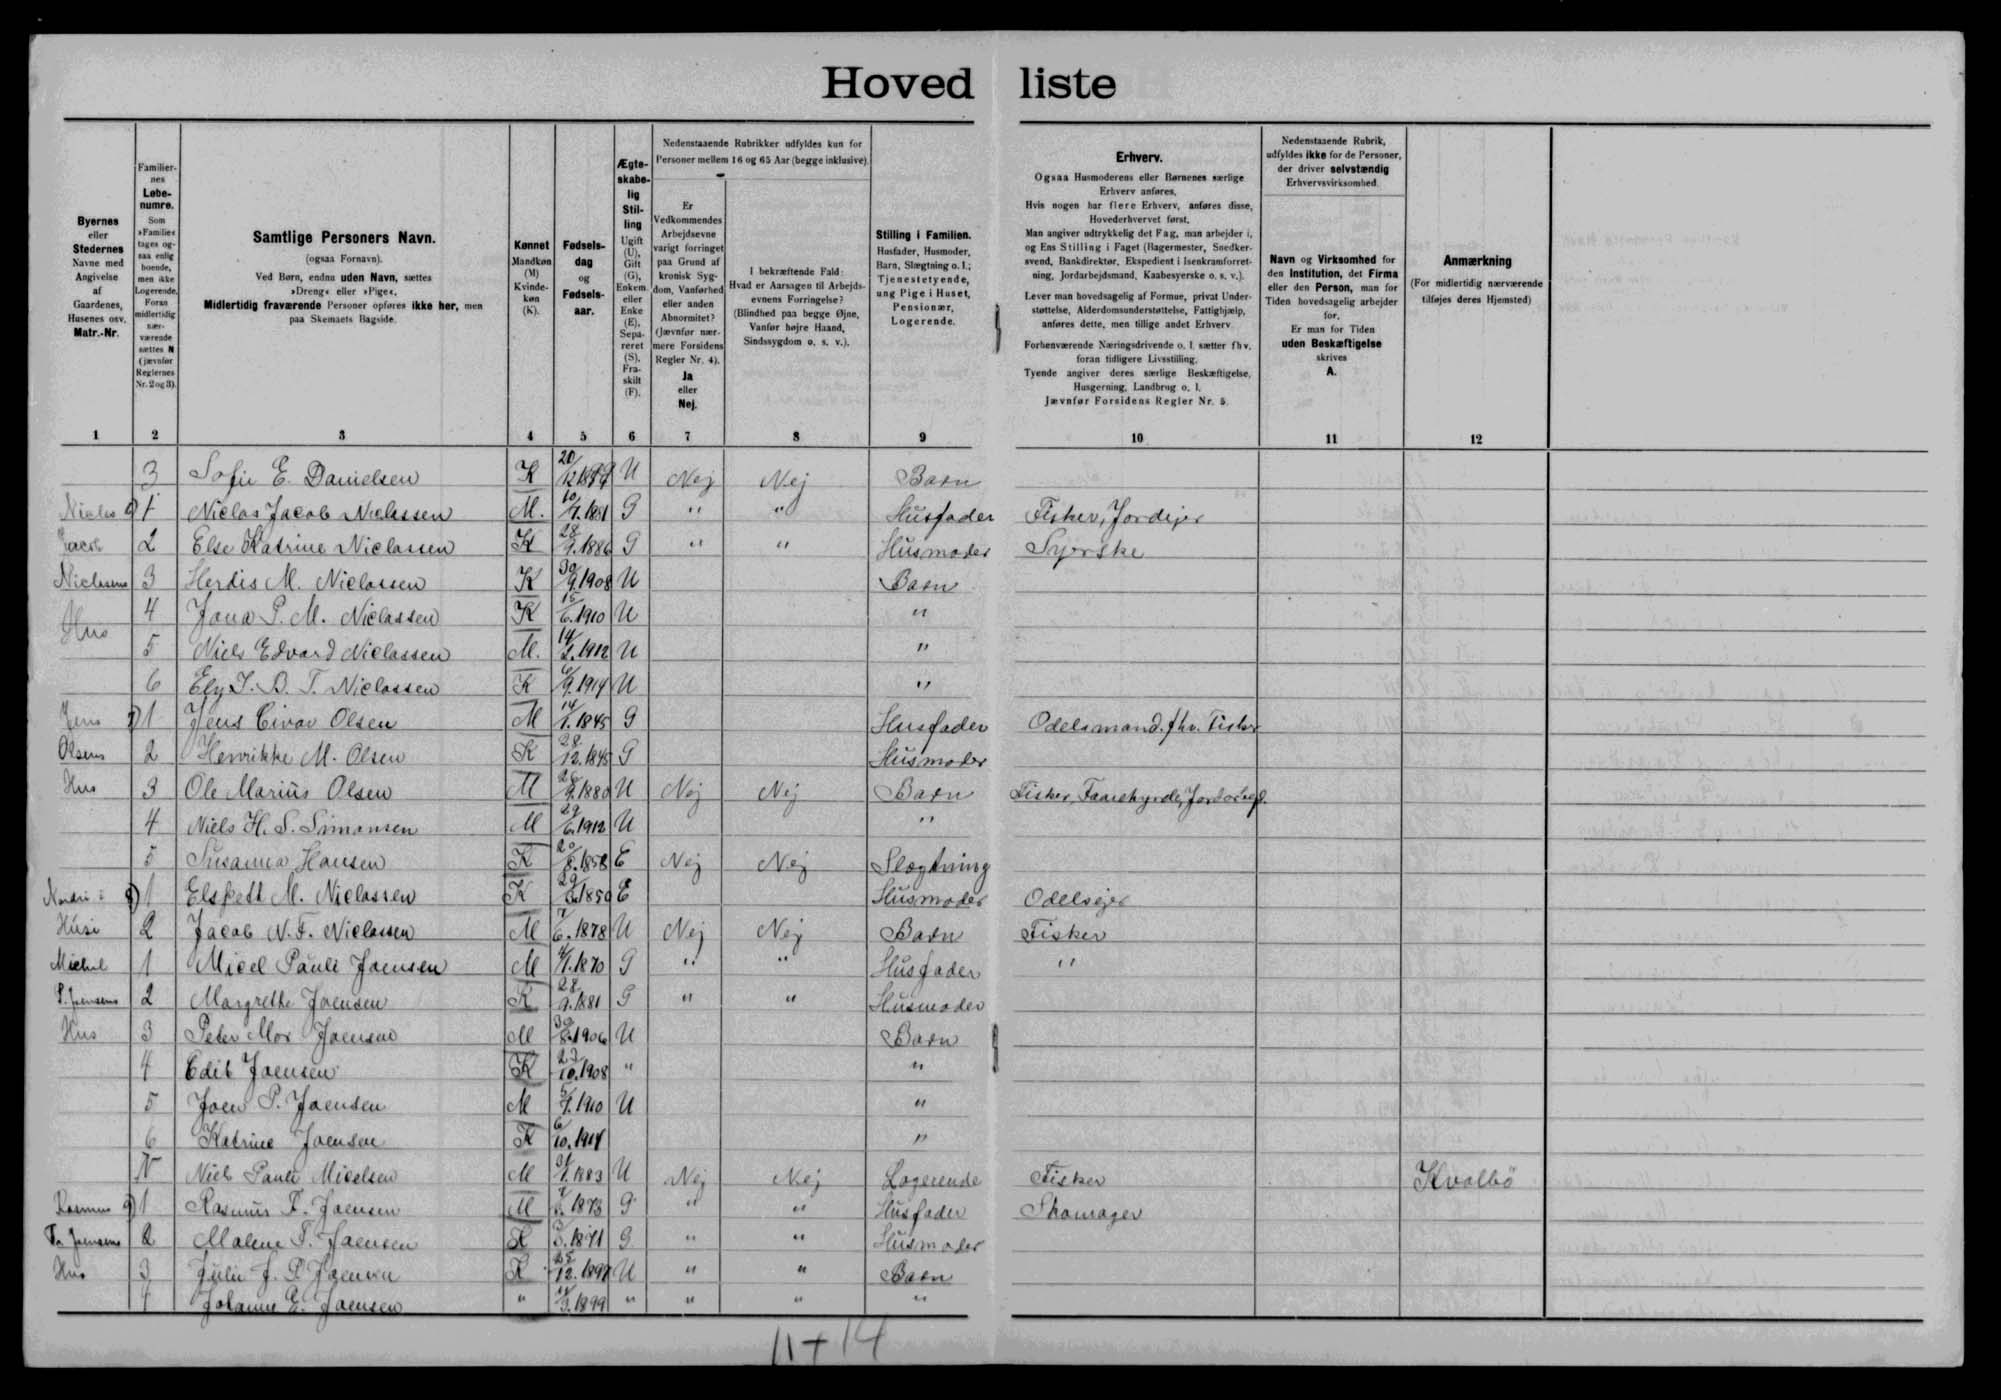 Hoved liste
Byernes eller Stedernes Navne med Angivelse af Gaardenes, Husenes osv. Matr.-Nr.
Familiernes Løbenumre. Som »Familie« tages ogsaa enlig boende, men ikke Logerende. Foran midlertidig nærværende sættes N (jævnfør Reglernes Nr. 2 og 3).
Samtlige Personers Navn. (ogsaa Fornavn). Ved Børn, endnu uden Navn, sættes »Dreng« eller »Pige«. Midlertidig fraværende Personer opføres ikke her, men paa Skemaets Bagside.
Kønnet Mandkøn (M) Kvindekøn (K).
Fødselsdag og Fødselsaar.
Ægteskabelig Stilling Ugift (U), Gift (G), Enkem. eller Enke (E), Separeret (S), Fraskilt (F).
Nedenstaaende Rubrikker udfyldes kun for Personer mellem 16 og 65 Aar (begge inklusive).
Er Vedkommendes Arbejdsevne varigt forringet paa Grund af kronisk Sygdom, Vanførhed eller anden Abnormitet? (Jævnfør nærmere Forsidens Regler Nr. 4). Ja eller Nej.
I bekræftende Fald: Hvad er Aarsagen til Arbejdsevnens Forringelse? (Blindhed paa begge Øjne, Vanfør højre Haand, Sindssygdom o. s. v.).
Stilling i Familien. Husfader, Husmoder, Barn, Slægtning o. l.; Tjenestetyende, ung Pige i Huset, Pensionær, Logerende.
Erhverv.
Ogsaa Husmoderens eller Børnenes særlige Erhverv anføres.
Hvis nogen har flere Erhverv, anføres disse, Hovederhvervet først.
Man angiver udtrykkelig det Fag, man arbejder i, og Ens Stilling i Faget (Bagermester, Snedkersvend, Bankdirektør, Ekspedient i Isenkramforretning, Jordarbejdsmand, Kaabesyerske o. s. v.).
Lever man hovedsagelig af Formue, privat Understøttelse, Alderdomsunderstøttelse, Fattighjælp, anføres dette, men tillige andet Erhverv.
Forhenværende Næringsdrivende o. l. sætter fhv. foran tidligere Livsstilling.
Tyende angiver deres særlige Beskæftigelse, Husgerning, Landbrug o. l.
Jævnfør Forsidens Regler Nr. 5.
Nedenstaaende Rubrik, udfyldes ikke for de Personer, der driver selvstændig Erhvervsvirksomhed.
Navn og Virksomhed for den Institution, det Firma eller den Person, man for Tiden hovedsagelig arbejder for.
Er man for Tiden uden Beskæftigelse skrives A.
Anmærkning (For midlertidig nærværende tilføjes deres Hjemsted)
1 2 3 4 5 6 7 8 9 10 11 12
3 Sofie E. Danielsen K U Nej Nej Barn
1 Niclas Jacob Niclassen M. 10/7.1881 G " " Husfader Fisker, Jordejer
Jacob 2 Else Katrine Niclassen K 28/9.1886 G " " Husmoder Syerske
Niclasens 3 Herdis M. Niclassen K 30/9.1908 U Barn
Hus 4 Jona P. M. Niclassen K 15/6.1910 U "
5 Niels Edvard Niclassen M. 1912 U "
6 Ely J. B. T. Niclassen K 6/9.1914 U "
Jens 7) 1 Jens Civar Olsen M 14/1.1845 G Husfader Odelsmand. fhv. Fisker
Olsens 2 Henrikke M. Olsen K 28/12.1845 G Husmoder
Hus 3 Ole Marius Olsen M 26/9.1880 U Nej Nej Barn Fisker, Faarehyrde,
4 Niels H. S. Simonsen M 29/6.1912 U "
5 Susanna Hansen K 20/8.1858 E Nej Nej Slægtning
8) 1 Elspeth M. Niclassen K 1850 E Husmoder Odelsejer
Húsi 2 Jacob N. F. Niclassen M 7/6.1878 U Nej Nej Barn Fisker
Michel 1 Micel Pauli Joensen M 1870 G " " Husfader "
P. Joensens 2 Margrethe Joensen K 28/9.1881 G " " Husmoder
Hus 3 Peter Mor Joensen M 30/8.1906 U Barn
4 Edit Joensen K 27/10.1908 " "
5 Joen P. Joensen M 5/9.1910 U "
6 Katrine Joensen K 6/10.1914 "
N Niels Pauli Micelsen M 31/1.1883 U Nej Nej Logerende Fisker Kvalbö
Rasmus 9) 1 Rasmus F. Joensen M 1873 G " " Husfader Skomager
Joensens 2 Malene F. Joensen K 3.1871 G " " Husmoder
Hus 3 Julie J. P. Joensen K 25/12.1897 U " " Barn
4 Johanne E. Joensen " 3.1899 " " " "
11+14